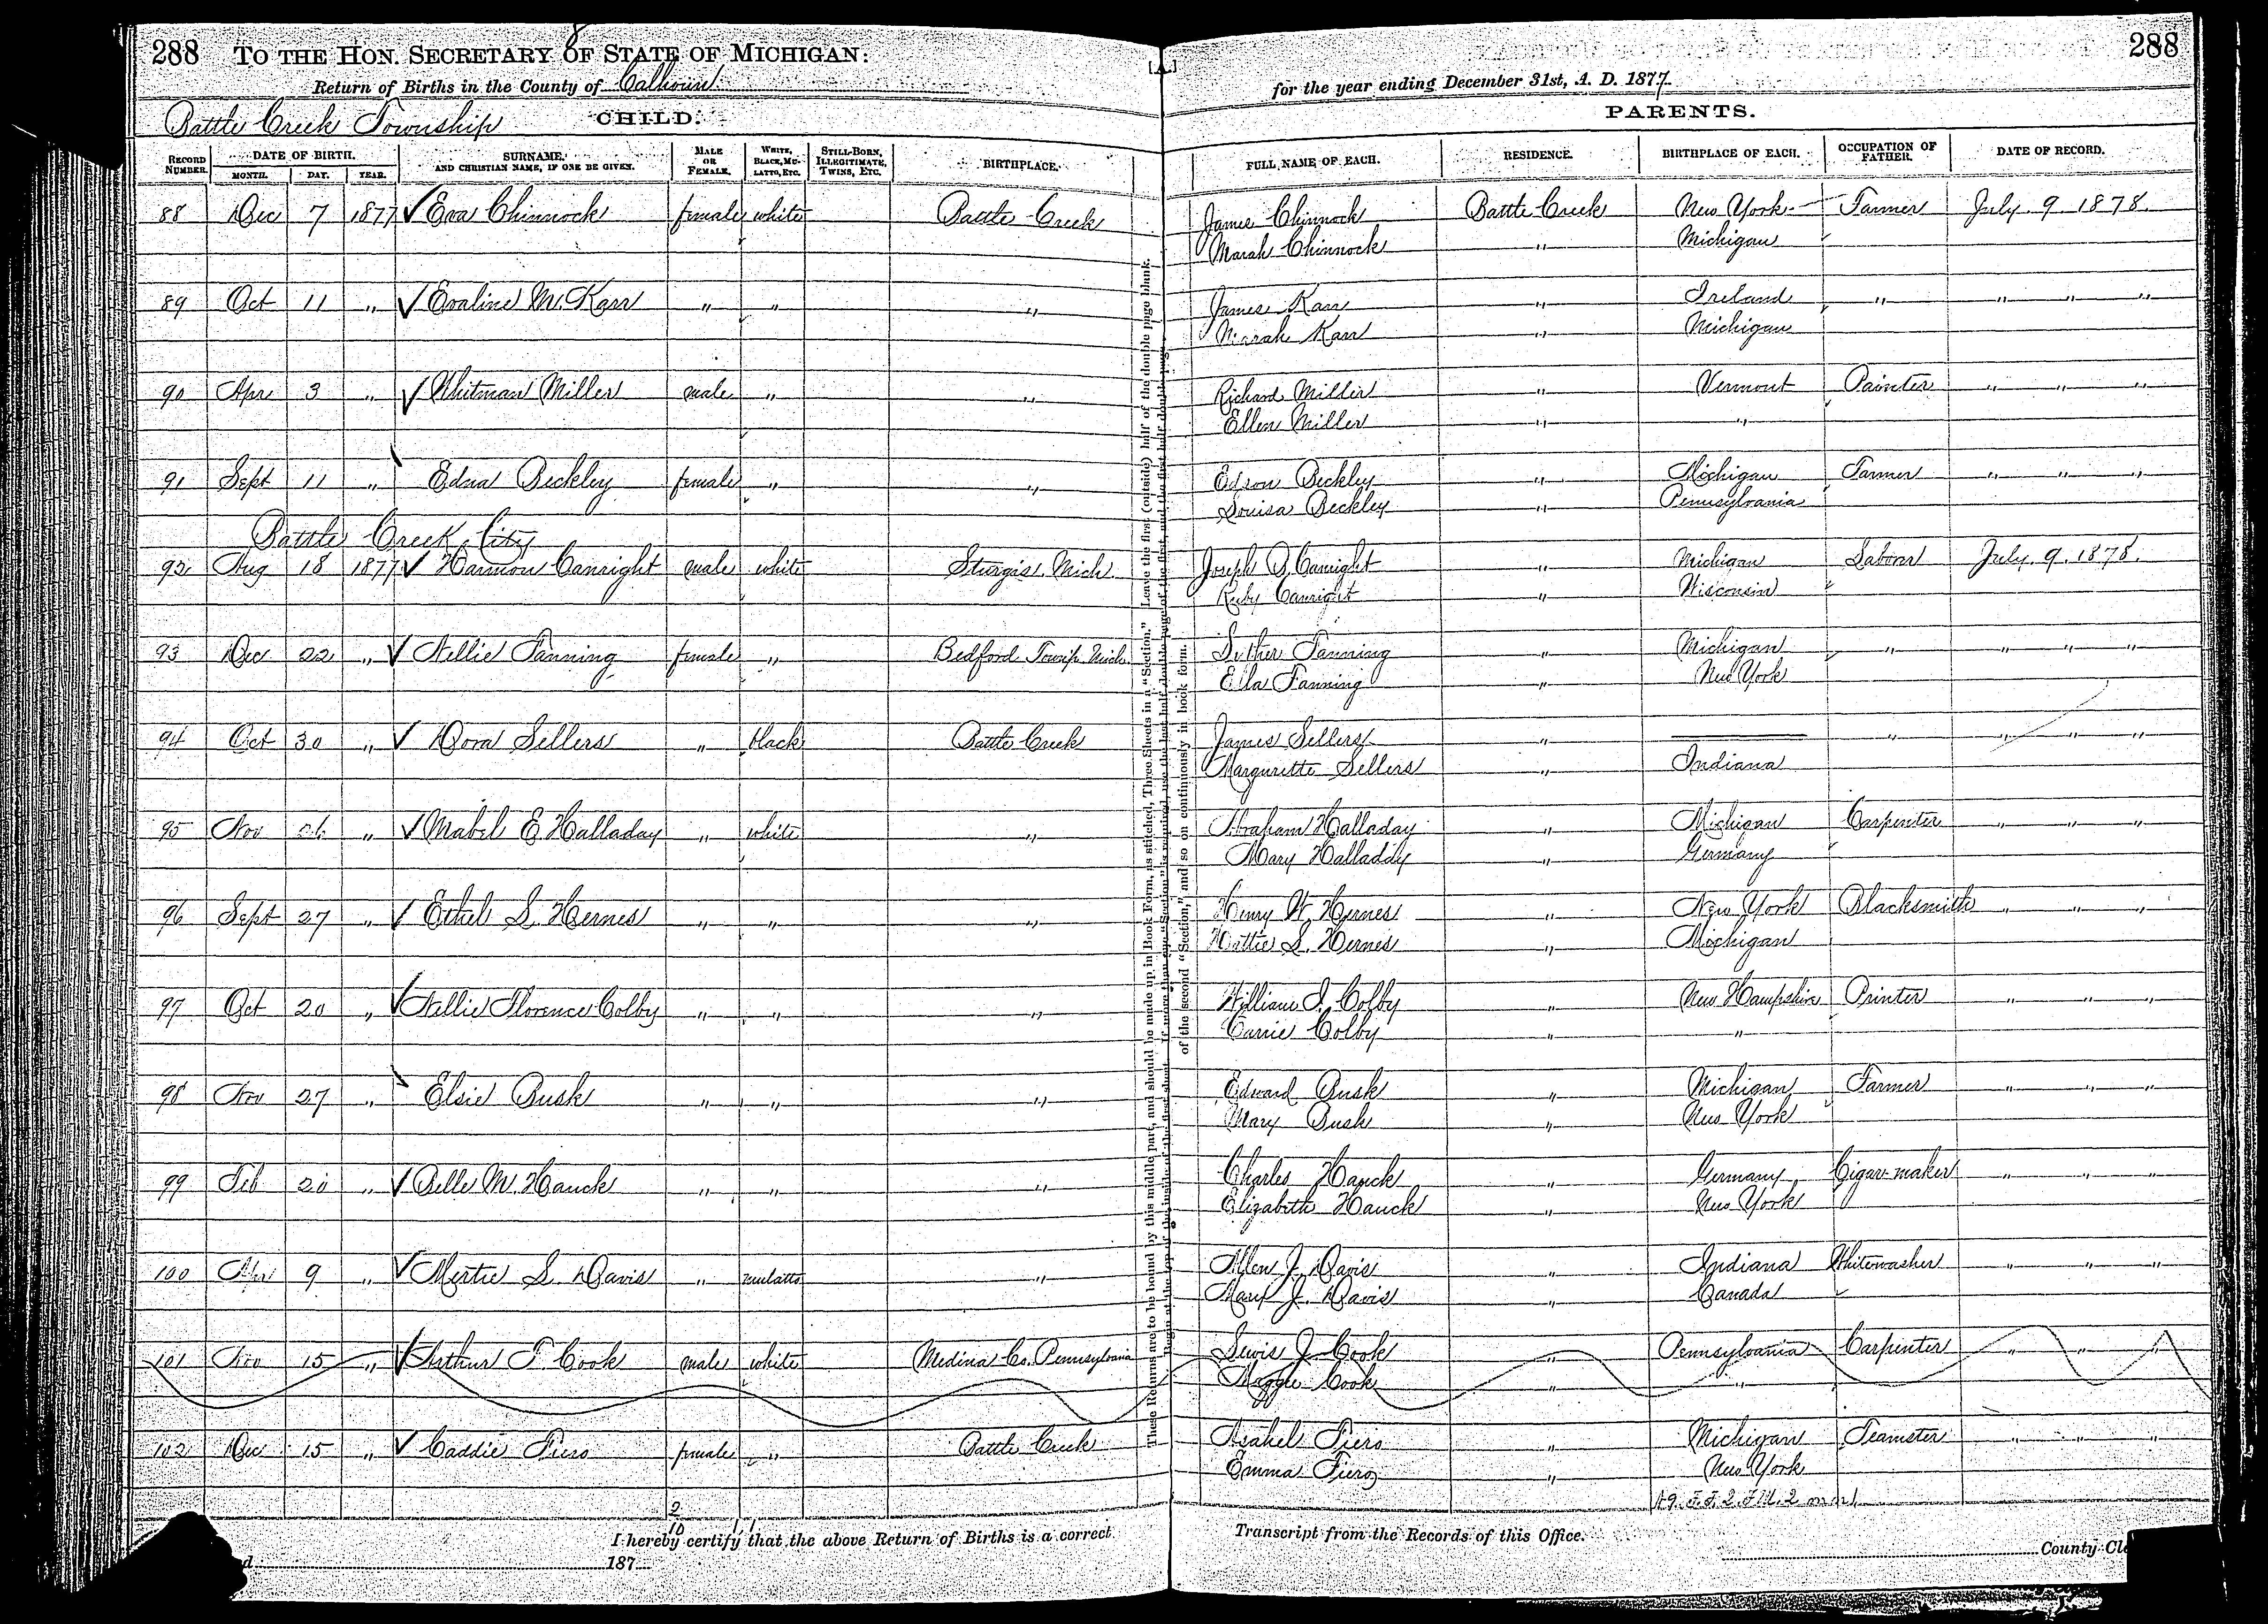 288 TO THE HON. SECRETARY OF STATE OF MICHIGAN: 288
Return of Births in the County of Calhoun for the year ending December 31st, A. D. 1877.
Battle Creek Township CHILD. PARENTS.
RECORD NUMBER. DATE OF BIRTH. MONTH. DAY. YEAR. SURNAME, AND CHRISTIAN NAME, IF ONE BE GIVEN. MALE OR FEMALE. WHITE, BLACK, MULATTO, ETC. STILL-BORN, ILLEGITIMATE, TWINS, ETC. BIRTHPLACE. FULL NAME OF EACH. RESIDENCE. BIRTHPLACE OF EACH. OCCUPATION OF FATHER. DATE OF RECORD.
88 Dec 7 1877 ✓ Eva Chinnock female white Battle Creek James Chinnock Battle Creek New York Farmer July 9 1878.
Marah Chinnock " Michigan
89 Oct 11 " ✓ Evaline M. Karr " " " James Karr " Ireland " " " "
Marah Karr " Michigan
90 Apr 3 " ✓ Whitman Miller male " " Richard Miller " Vermont Painter " " "
Ellen Miller " "
91 Sept 11 " Edna Beckley female " " Edson Beckley " Michigan Farmer " " "
Louisa Beckley " Pennsylvania
Battle Creek City
92 Aug 18 1877 ✓ Harmon Canright male white Sturgis Mich. Joseph S. Canright " Michigan Labour July 9. 1878.
Ruby Canright " Wisconsin
93 Dec 22 " ✓ Nellie Fanning female " Bedford Townsp Mich. Luther Fanning " Michigan " " " "
Ella Fanning " New York
94 Oct 30 " ✓ Dora Sellers " black Battle Creek James Sellers " " " " "
Margurette Sellers " Indiana
95 Nov 26 " ✓ Mabel E Halladay " white " Abraham Halladay " Michigan Carpenter " " "
Mary Halladay " Germany
96 Sept 27 " ✓ Ethel S. Hernes " " " Henry W. Hernes " New York Blacksmith " " "
Hattie S. Hernes " Michigan
97 Oct 20 " ✓ Nellie Florence Colby " " " William I. Colby " New Hampshire Printer " " "
Carrie Colby " "
98 Nov 27 " Elsie Busk " " " Edward Busk " Michigan Farmer " " "
Mary Busk " New York
99 Feb 20 " ✓ Belle M. Hauck " " " Charles Hauck " Germany Cigar-maker " " "
Elizabeth Hauck " New York
100 Apr 9 " ✓ Mertie S. Davis " mulatto " Allen J. Davis " Indiana Whitewasher " " "
Mary J. Davis " Canada
101 Nov 15 " ✓ Arthur T. Cook male white Medina Co. Pennsylvania Lewis J. Cook " Pennsylvania Carpenter " " "
Maggie Cook " "
102 Dec 15 " ✓ Caddie Fiero female " Battle Creek Asahel Fiero " Michigan Teamster " " "
Emma Fiero " New York
2
10 11
I hereby certify that the above Return of Births is a correct Transcript from the Records of this Office.
187 County Cle